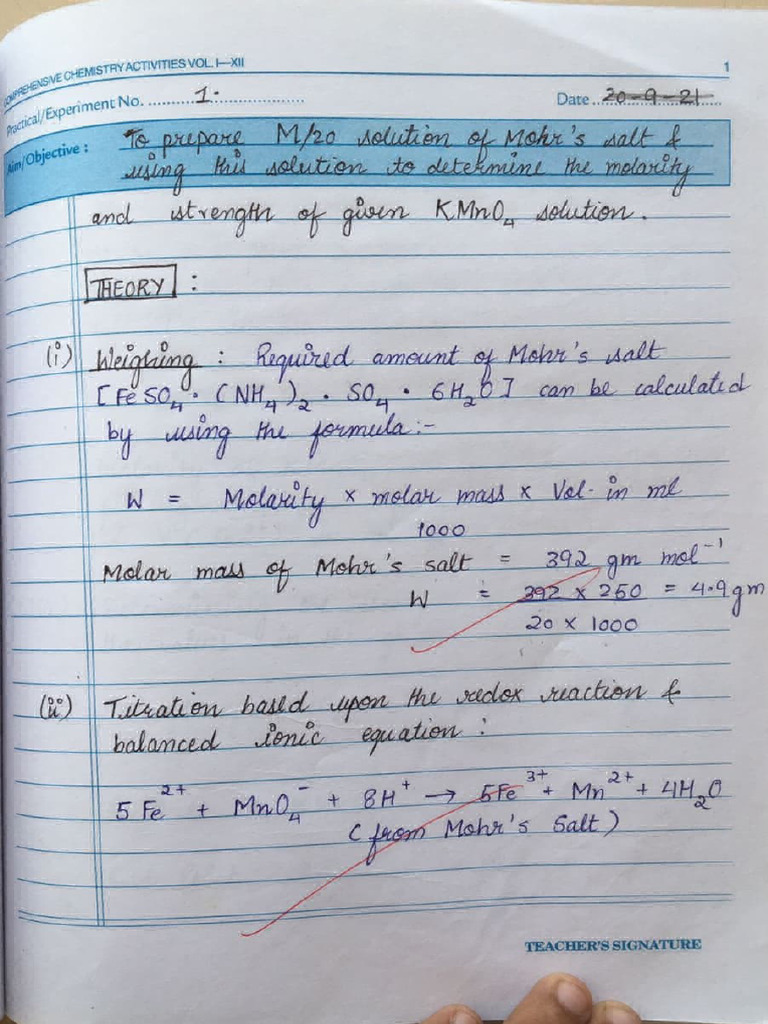 COMPREHENSIVE CHEMISTRY ACTIVITIES VOL. I—XII 1
Practical/Experiment No. 1. Date 20-9-21
Aim/Objective : To prepare M/20 solution of Mohr's salt &
using this solution to determine the molarity
and strength of given KMnO₄ solution.
THEORY :
(i) Weighing : Required amount of Mohr's salt
[FeSO₄ · (NH₄)₂ · SO₄ · 6H₂O] can be calculated
by using the formula:-
W = Molarity x molar mass x Vol. in ml
1000
Molar mass of Mohr's salt = 392 gm mol⁻¹
W = 392 x 250 = 4.9 gm
20 x 1000
(ii) Titration based upon the redox reaction &
balanced ionic equation :
5Fe²⁺ + MnO₄⁻ + 8H⁺ → 5Fe³⁺ + Mn²⁺ + 4H₂O
(from Mohr's Salt)
TEACHER'S SIGNATURE